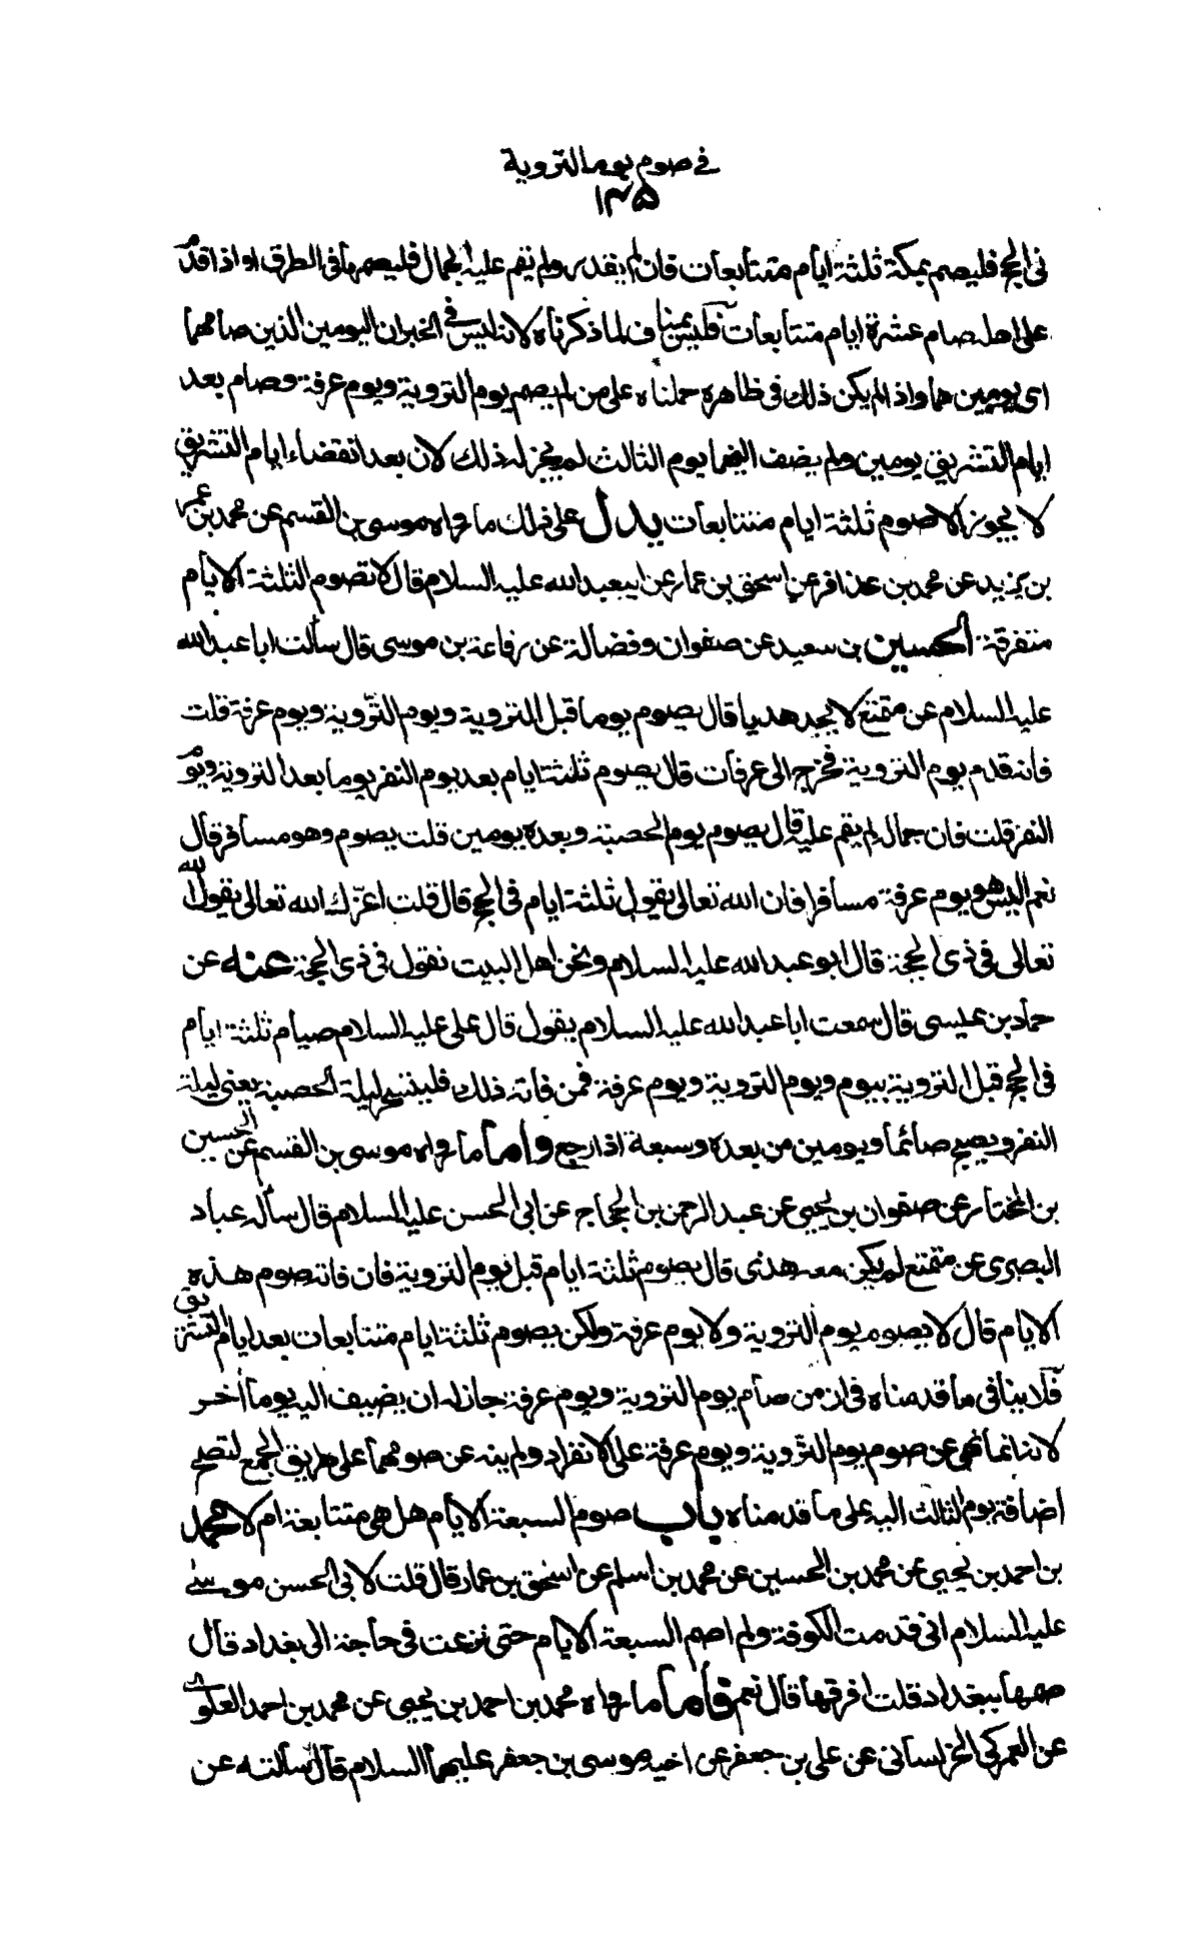 في صوم يوم التروية
١٣٥
في الحج فليصم بمكة ثلثة ايام متتابعات فان لم يقدر ولم يقم عليه الجمال فليصمها في الطريق او اذا قدم
على اهله صام عشرة ايام متتابعات فليس بمناف لما ذكرناه لانه ليس في الخبر ان اليومين الذين صامهما
اي يومين هما واذا لم يكن ذلك في ظاهره حملناه على من لم يصم يوم التروية ويوم عرفة وصام بعد
ايام التشريق يومين ولم يضف اليهما يوم الثالث لم يجز له ذلك لان بعد انقضاء ايام التشريق
لا يجوز الا صوم ثلثة ايام متتابعات يدل على ذلك ما رواه موسى بن القسم عن محمد بن عمر
بن يزيد عن محمد بن عذافر عن اسحق بن عمار عن ابيعبد الله عليه السلام قال لا تصوم الثلثة الايام
متفرقة الحسين بن سعيد عن صفوان وفضالة عن رفاعة بن موسى قال سألت ابا عبد الله
عليه السلام عن متمتع لا يجد هديا قال يصوم يوما قبل التروية ويوم التروية ويوم عرفة قلت
فانه قدم يوم التروية فخرج الى عرفات قال يصوم ثلثة ايام بعد يوم النفر يوما بعد التروية ويوم
النفر قلت فان جماله لم يقم عليه قال يصوم يوم الحصبة وبعده يومين قلت يصوم وهو مسافر قال
نعم اليس هو يوم عرفة مسافرا فان الله تعالى يقول ثلثة ايام في الحج قال قلت اعزك الله تعالى يقول الله
تعالى في ذي الحجة قال ابو عبد الله عليه السلام ونحن اهل البيت نقول في ذي الحجة عنه عن
حماد بن عيسى قال سمعت ابا عبد الله عليه السلام يقول قال علي عليه السلام صيام ثلثة ايام
في الحج قبل التروية بيوم ويوم التروية ويوم عرفة فمن فاته ذلك فليتسحر ليلة الحصبة يعني ليلة
النفر ويصبح صائما ويومين من بعده وسبعة اذا رجع واما ما رواه موسى بن القسم عن الحسين
بن المختار عن صفوان بن يحيى عن عبد الرحمن بن الحجاج عن ابي الحسن عليه السلام قال سأله عباد
البصري عن متمتع لم يكن معه هدى قال يصوم ثلثة ايام قبل يوم التروية فان فاته صوم هذه
الايام قال لا يصوم يوم التروية ولا يوم عرفة ولكن يصوم ثلثة ايام متتابعات بعد ايام التشريق
فلا ينافي ما قدمناه في ان من صام يوم التروية ويوم عرفة جاز له ان يضيف اليه يوما اخر
لانه انما نهى عن صوم يوم التروية ويوم عرفة على الانفراد ولم ينه عن صومهما على طريق الجمع لتصح
اضافة يوم الثالث اليه على ما قدمناه باب صوم السبعة الايام هل هي متتابعة ام لا محمد
بن احمد بن يحيى عن محمد بن الحسين عن محمد بن اسلم عن اسحق بن عمار قال قلت لابي الحسن موسى
عليه السلام اني قدمت الكوفة ولم اصم السبعة الايام حتى نزعت في حاجة الى بغداد قال
صمها ببغداد قلت افرقها قال نعم فاما ما رواه محمد بن احمد بن يحيى عن محمد بن احمد العلوي
عن العمركي الخراساني عن علي بن جعفر عن اخيه موسى بن جعفر عليهما السلام قال سألته عن